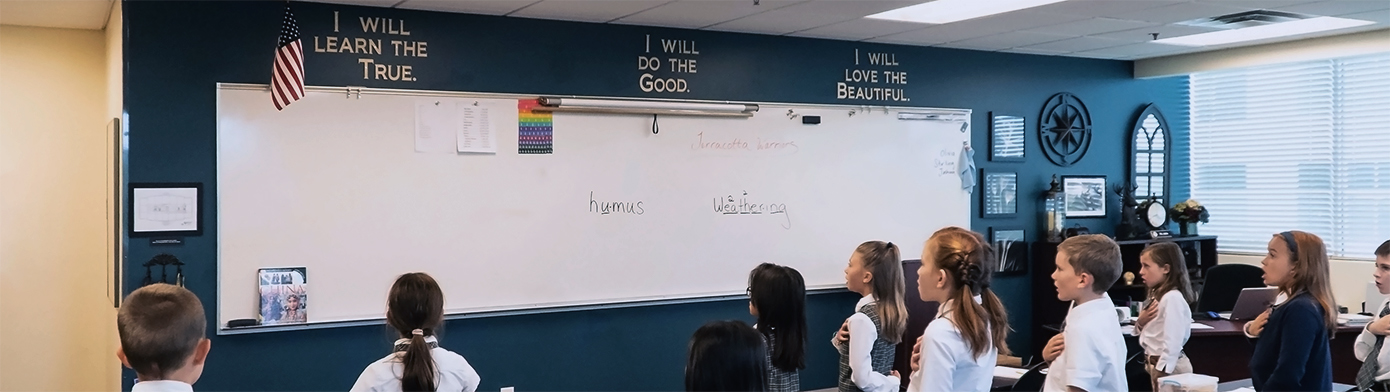 I WILL
LEARN THE
TRUE.
I WILL
DO THE
GOOD.
I WILL
LOVE THE
BEAUTIFUL.
Terracotta Warriors
humus
Weathering
CHINA